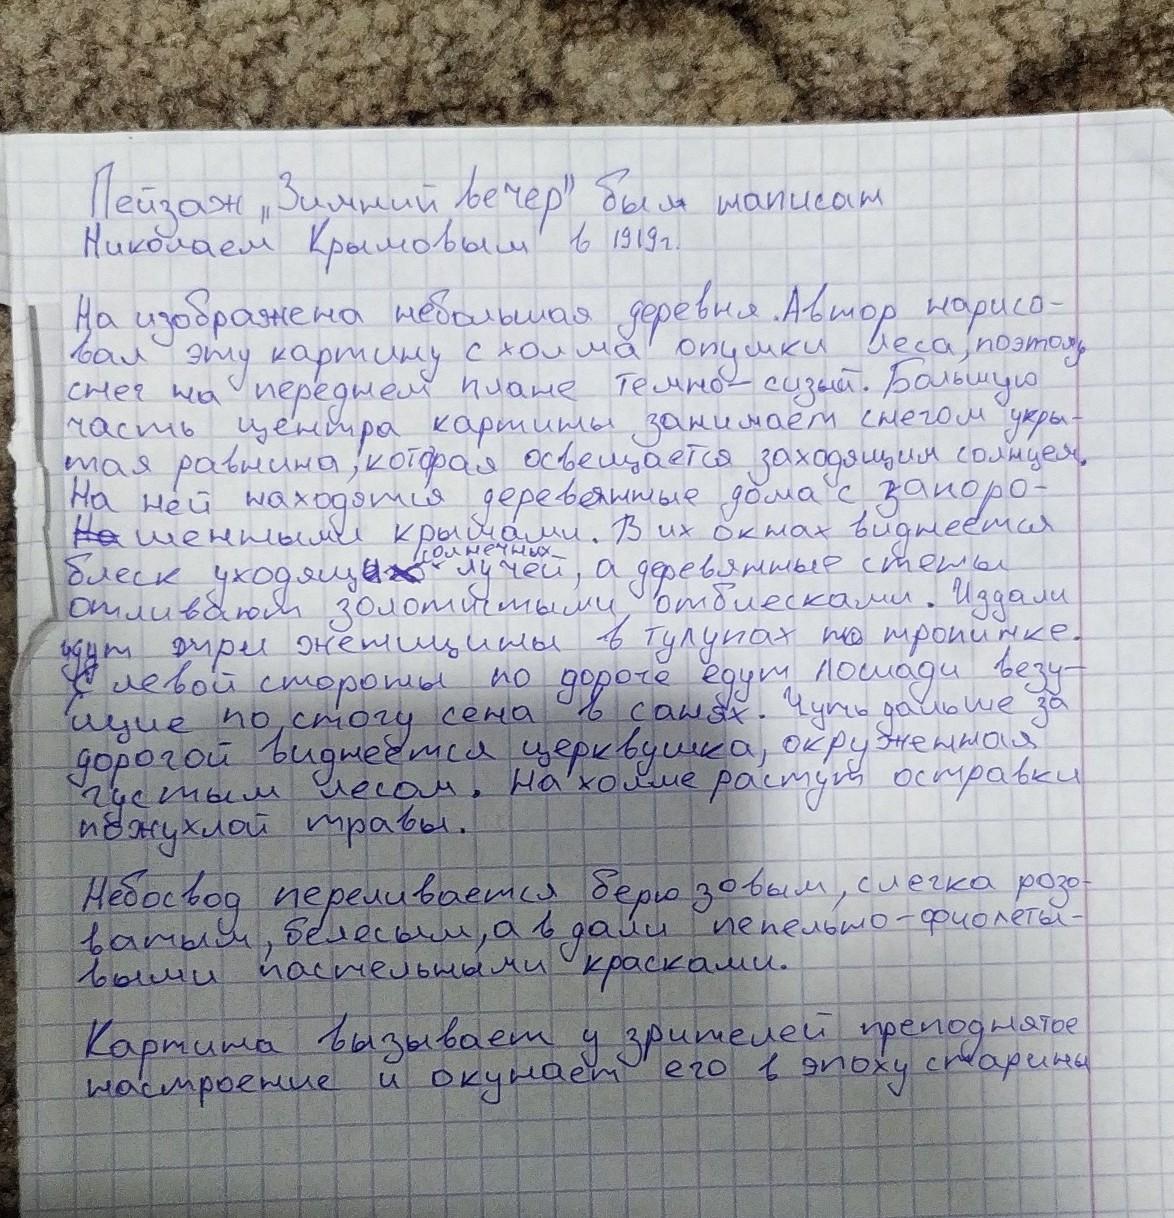 Пейзаж „Зимний вечер" был написан
Николаем Крымовым в 1919г.
На изображена небольшая деревня. Автор нарисо-
вал эту картину с холма опушки леса, поэтому
снег на переднем плане темно-сизый. Большую
часть центра картины занимает снегом укры-
тая равнина, которая освещается заходящим солнцем.
На ней находятся деревянные дома с запоро-
шенными крышами. В их окнах виднеется
солнечных
блеск уходящих лучей, а деревянные стены
отливают золотистыми отблесками. Издали
идут три женщины в тулупах по тропинке.
С левой стороны по дороге едут лошади везу-
щие по стогу сена в санях. Чуть дальше за
дорогой виднеется церквушка, окруженная
густым лесом. На холме растут остравки
пожухлой травы.
Небосвод переливается берюзовым, слегка розо-
ватым, белесым, а в дали пепельно-фиолеты-
выми пастельными красками.
Картина вызывает у зрителей преподнятое
настроение и окунает его в эпоху старины